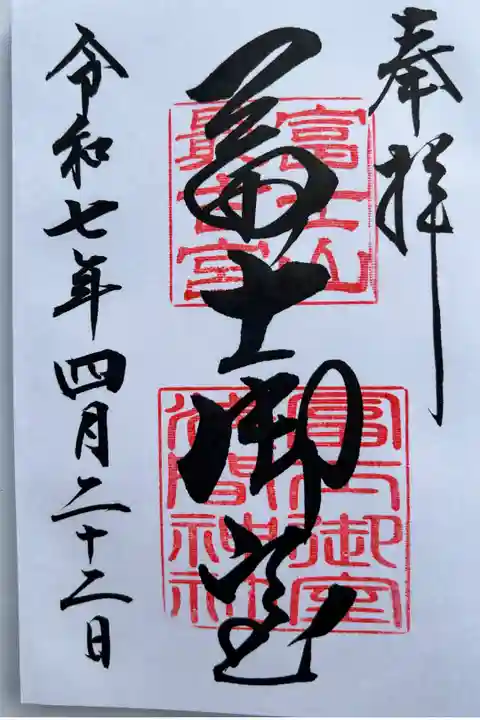 奉拝
富士山
最古宮
冨士御室
冨士御室
浅間神社
令和七年四月二十二日